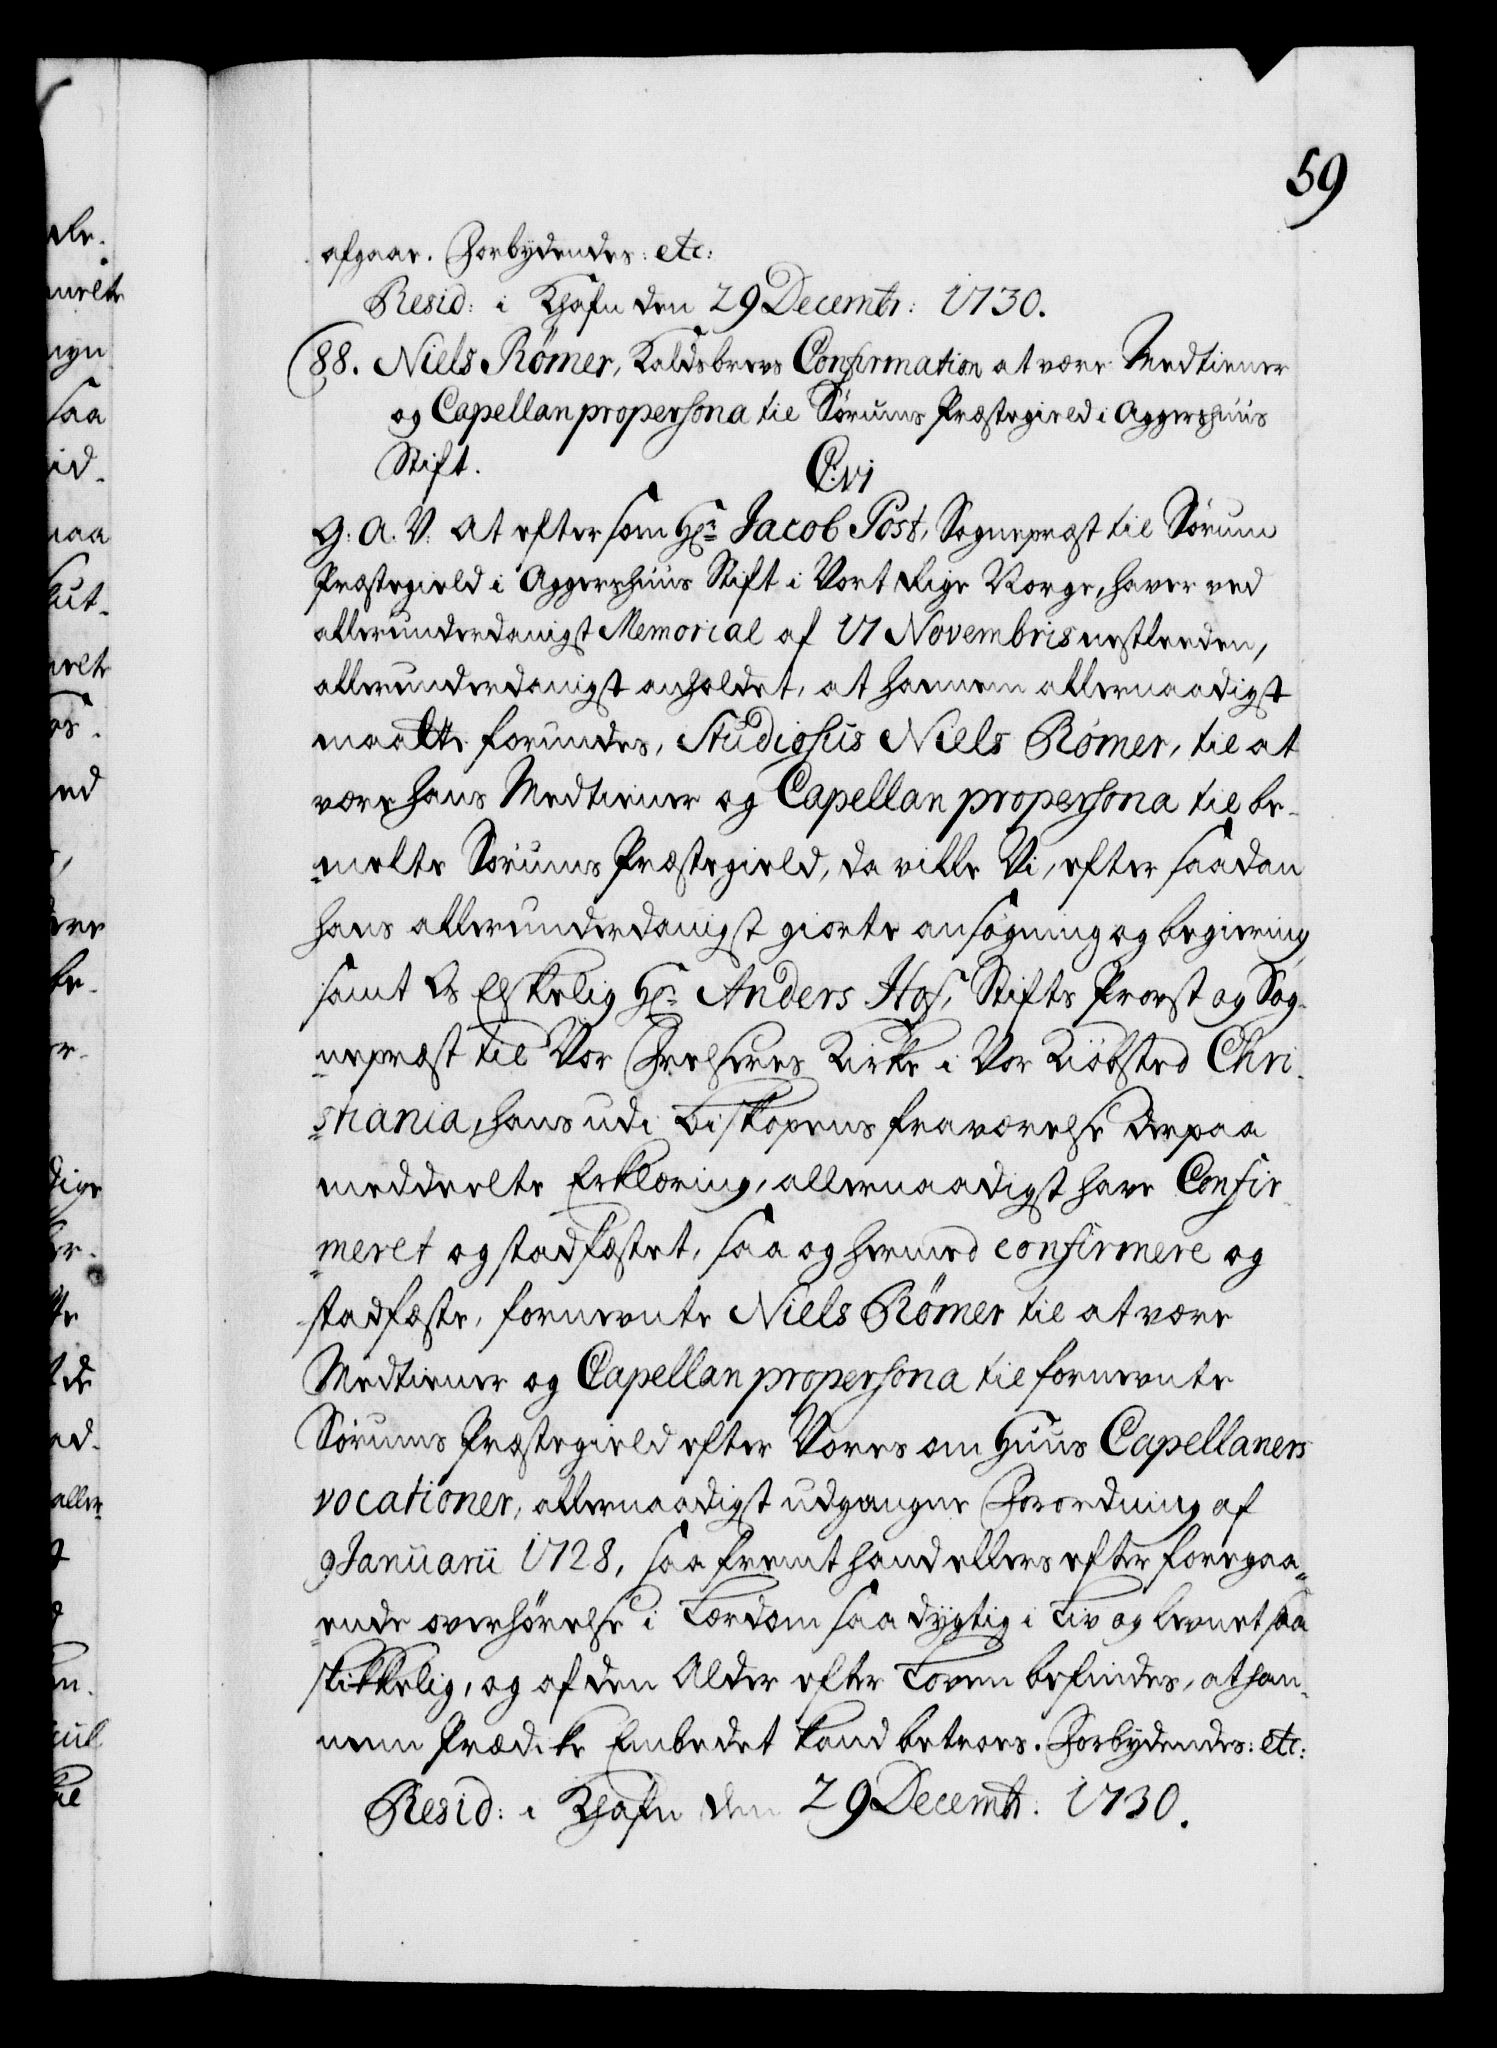 59
afgaar. Forbydendes: etc:
Resid: i Khafn den 29 Decembr: 1730.
88. Niels Römer, Kaldsbrevs Confirmation at være Medtiener
og Capellan propersona til Sørums Præstegield i Aggershuus
Stift.
C. vi
G. A. V. At eftersom Hr. Jacob Post, Sognepræst til Sørum
Præstegield i Aggershuus Stift i Vort Rige Norge, haver ved
allerunderdanigst Memorial af 17 Novembris nestleeden,
allerunderdanigst anholdet, at hannem allernaadigst
maatte forundes, Studiosus Niels Römer, til at
være hans Medtiener og Capellan propersona til be-
melte Sørums Præstegield, da ville Vi, efter saadan
hans allerunderdanigst giorte ansøgning og begiering
samt Os Elskelig Hr. Anders Hof, Stifts Provst og Sog-
nepræst til Vor Frelseres Kirke i Vor Kiøbsted Chri-
stiania, hans udi Biskopens fraværelse derpaa
meddeelte Erklæring, allernaadigst have Confir-
meret og stadfæstet, saa og hermed confirmere og
stadfæste, fornevnte Niels Römer til at være
Medtiener og Capellan propersona til fornevnte
Sørums Præstegield efter Vores om Huus Capellaners
vocationer, allernaadigst udgangne Forordning af
9 Januarii 1728, saa fremt hand ellers efter foregaa-
ende overhörelse i Lærdom saa dygtig i Liv og levnet saa
skikkelig, og af den Alder efter Loven befindes, at han-
nem Prædike Embedet kand betroes. Forbydendes: etc:
Resid: i Khafn den 29 Decembr: 1730.